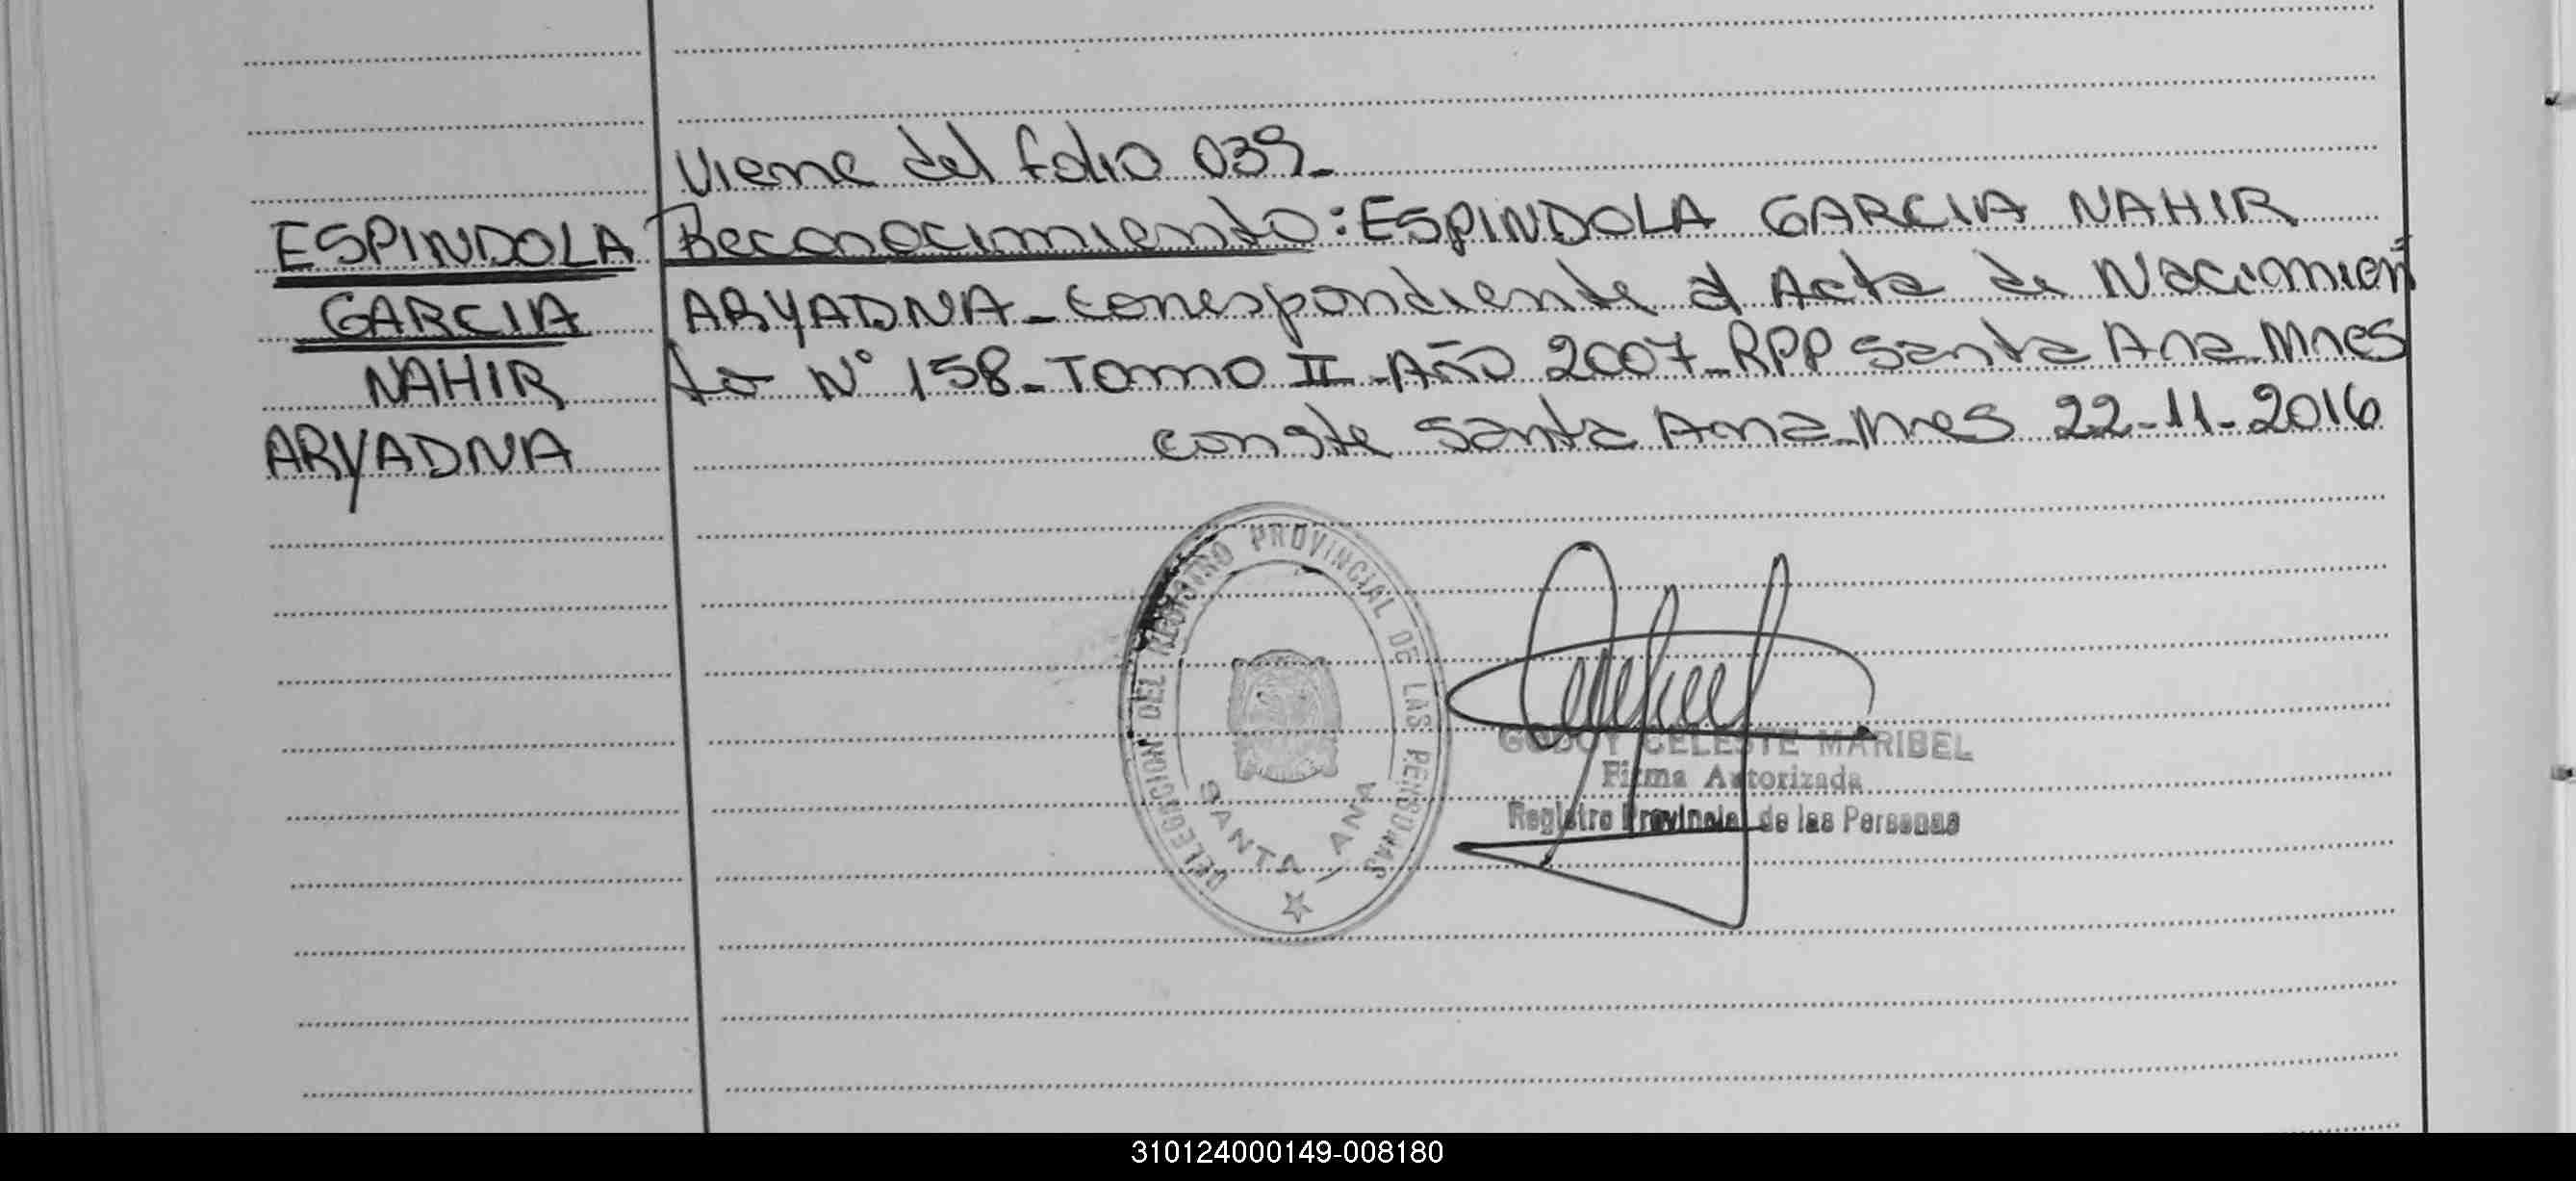 Viene del folio 039_
ESPINDOLA
GARCIA
NAHIR
ARYADNA
Reconocimiento: ESPINDOLA GARCIA NAHIR
ARYADNA_ correspondiente al Acta de Nacimien=
to N° 158_ Tomo II_ Año 2007_ RPP Santa Ana_ Mnes
conste Santa Ana_ Mnes 22-11-2016
DELEGACION DEL REGISTRO PROVINCIAL DE LAS PERSONAS
SANTA ANA
GODOY CELESTE MARIBEL
Firma Autorizada
Registro Provincial de las Personas
310124000149-008180